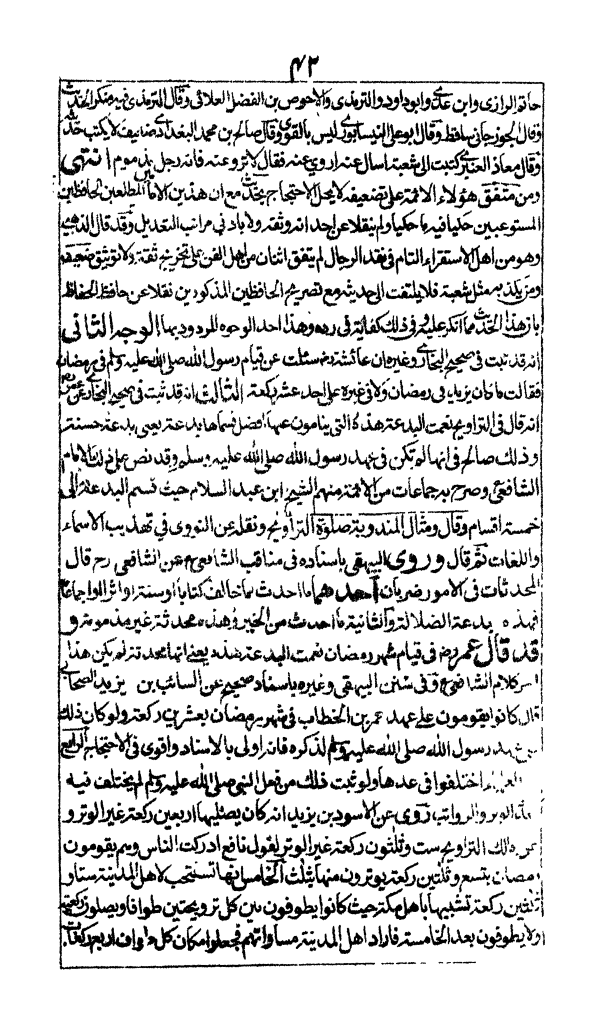 ۴۲
حاتم الرازى وابن عدى وابوداود والترمذى والاحوص بن الفضل العلائى وقال الترمذى فيه منكر الحديث
وقال الجوزجانى ساقط وقال ابوعلى النيسابورى ليس بالقوى وقال صالح بن محمد البغدادى ضعيف لا يكتب حديثه
وقال معاذ العنبرى كتبت الى شعبة اسال عنه اروى عنه فقال لا تروعنه فانه رجل مذموم انتهى
ومن متفق هؤلاء الائمة على تضعيفه لا يحل الاحتجاج بحديثه مع ان هذين الامامين المطلعين الحافظين
المستوعبين حكيا فيه ما حكيا ولم ينقلا عن احد انه وثقه ولا بادنى مراتب التعديل وقد قال الذهبى
وهو من اهل الاستقراء التام فى نقد الرجال لم يتفق اثنان من اهل الفن على تجريح ثقة ولا توثيق ضعيف
ومن يكذبه مثل شعبة فلا يلتفت الى حديثه مع تصريح الحافظين المذكورين نقلا عن حافظ الحفاظ
بان هذا الحديث مما انكر عليه وفى ذلك كفاية فى رده وهذا احد الوجوه المردود بها الوجه الثانى
انه قد ثبت فى صحيح البخارى وغيره ان عائشة رض سئلت عن قيام رسول الله صلى الله عليه وسلم فى رمضان
فقالت ما كان يزيد فى رمضان ولا فى غيره على احد عشر ركعة الثالث انه قد ثبت فى صحيح البخارى عن عمر رض
انه قال فى التراويح نعمت البدعة هذه التى ينامون عنها افضل فسماها بدعة يعنى بدعة حسنة
وذلك صالح فى انها لم تكن فى عهد رسول الله صلى الله عليه وسلم وقد نص على ذلك الامام
الشافعى وصرح به جماعات من الائمة منهم الشيخ ابن عبد السلام حيث قسم البدعة الى
خمسة اقسام وقال ومثال المندوبة صلوة التراويح ونقله عن النووى فى تهذيب الاسماء
واللغات ثم قال وروى البيهقى باسناده فى مناقب الشافعى عن الشافعى رح قال
المحدثات فى الامور ضربان احدهما ما احدث مما خالف كتابا او سنة او اثرا او اجماعا
فهذه بدعة الضلالة والثانية ما احدث من الخير وهذه محدثة غير مذمومة و
قد قال عمر رض فى قيام شهر رمضان نعمت البدعة هذه يعنى انها محدثة لم يكن هذا
كلام الشافعى وفى سنن البيهقى وغيره باسناد صحيح عن السائب بن يزيد الصحابى
قال كانوا يقومون على عهد عمر بن الخطاب فى شهر رمضان بعشرين ركعة ولو كان ذلك
عهد رسول الله صلى الله عليه وسلم لذكره فانه اولى بالاسناد واقوى فى الاحتجاج الرابع
العلماء اختلفوا فى عددها ولو ثبت ذلك من فعل النبى صلى الله عليه وسلم لم يختلف فيه
الوتر والرواتب روى عن الاسود بن يزيد انه كان يصليها اربعين ركعة غير الوتر و
مالك التراويح ست وثلثون ركعة غير الوتر لقول نافع ادركت الناس وهم يقومون
رمضان بتسع وثلثين ركعة يوترون منها بثلث الخامس انها تستحب لاهل المدينة ستا و
ثلثين ركعة تشبيها باهل مكة حيث كانوا يطوفون بين كل ترويحتين طوافا ويصلون ركعتيه
ولا يطوفون بعد الخامسة فاراد اهل المدينة مساواتهم فجعلوا مكان كل طواف اربع ركعات